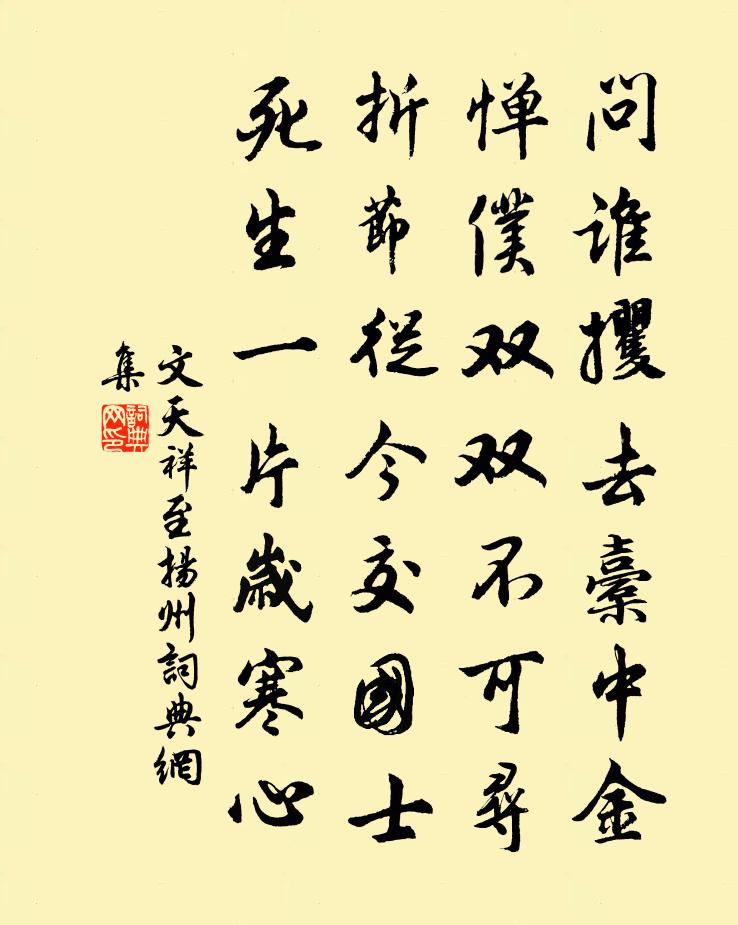 问谁攫去橐中金
惮僕双双不可尋
折節從今交國士
死生一片歲寒心
文天祥至揚州詞典網
集
詞典
网印